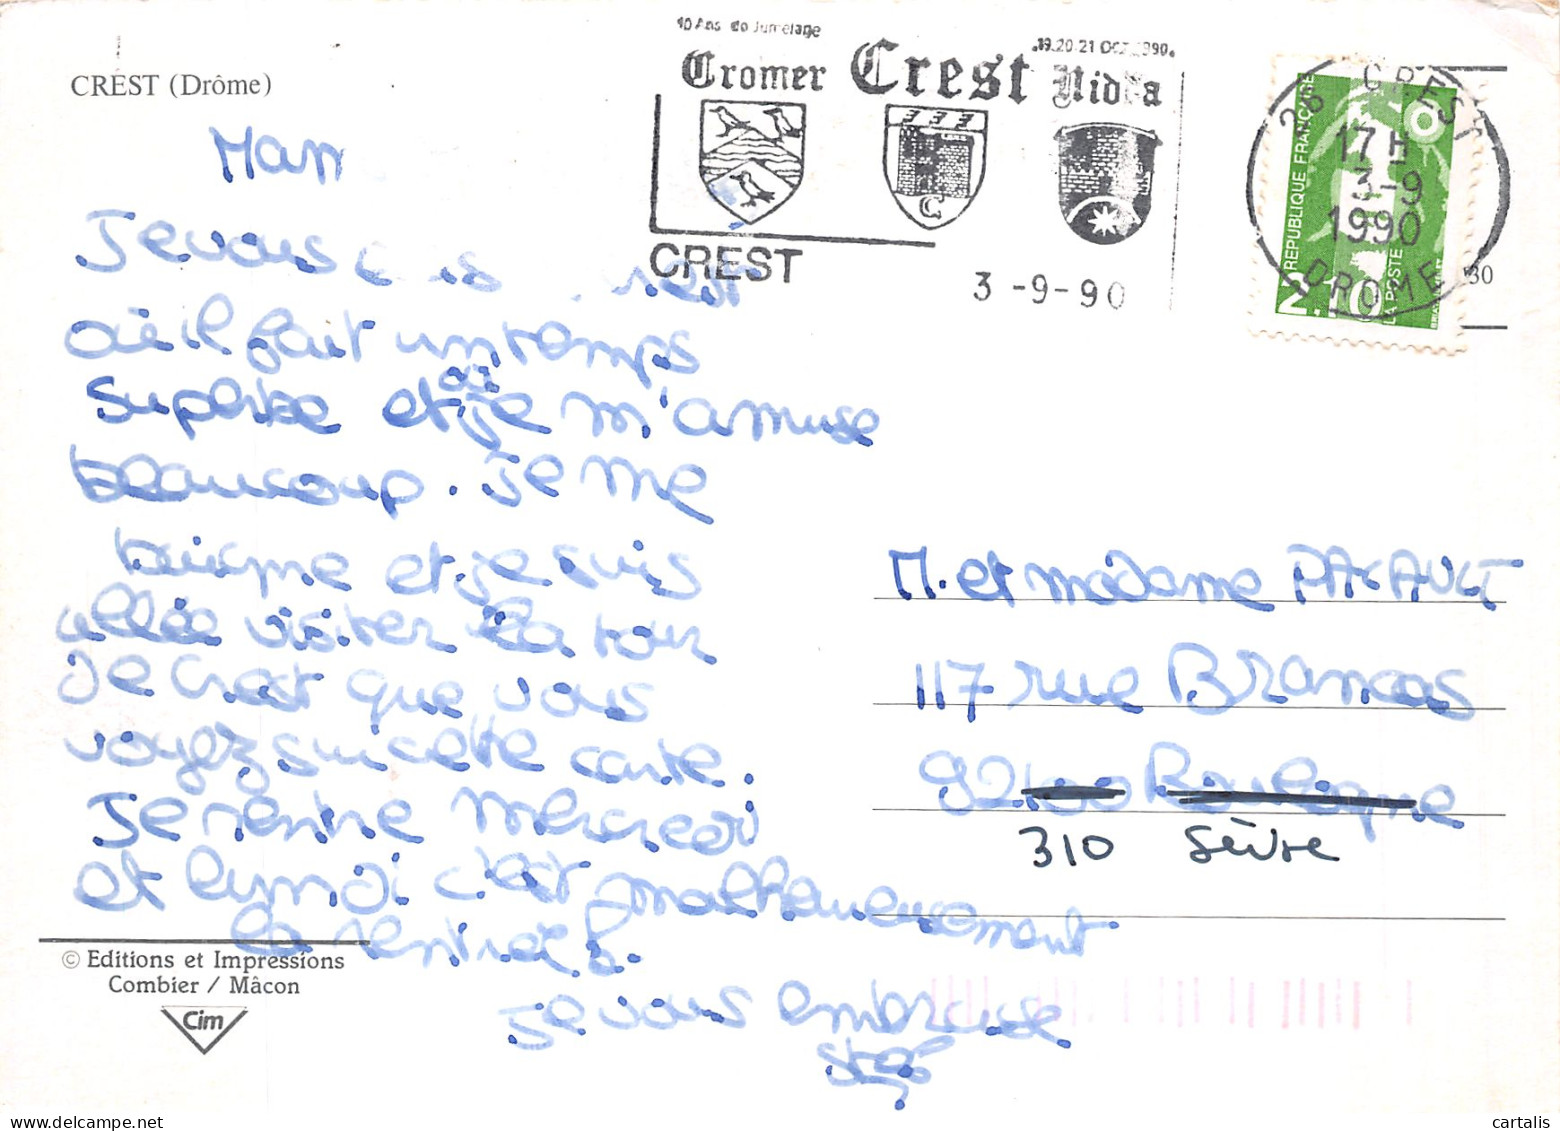 10 Ans de Jumelage
19.20.21 OCT 1990
Cromer Crest Nidda
CREST
3 -9- 90
26 CREST
17 H
3-9
1990
DROME
REPUBLIQUE FRANÇAISE
2.10
LA POSTE
30
CREST (Drôme)
Je vous
où il fait un temps
superbe et où je m'amuse
beaucoup. Je me
baigne et je suis
allée visiter la tour
de Crest que vous
voyez sur cette carte.
Je rentre Mercredi
et lundi c'est malheureusement
la rentrée
Je vous embrasse
Stéf
M. et madame
117 rue Brancas
92100 Boulogne
310 Sèvre
© Editions et Impressions
Combier / Mâcon
Cim
cartalis